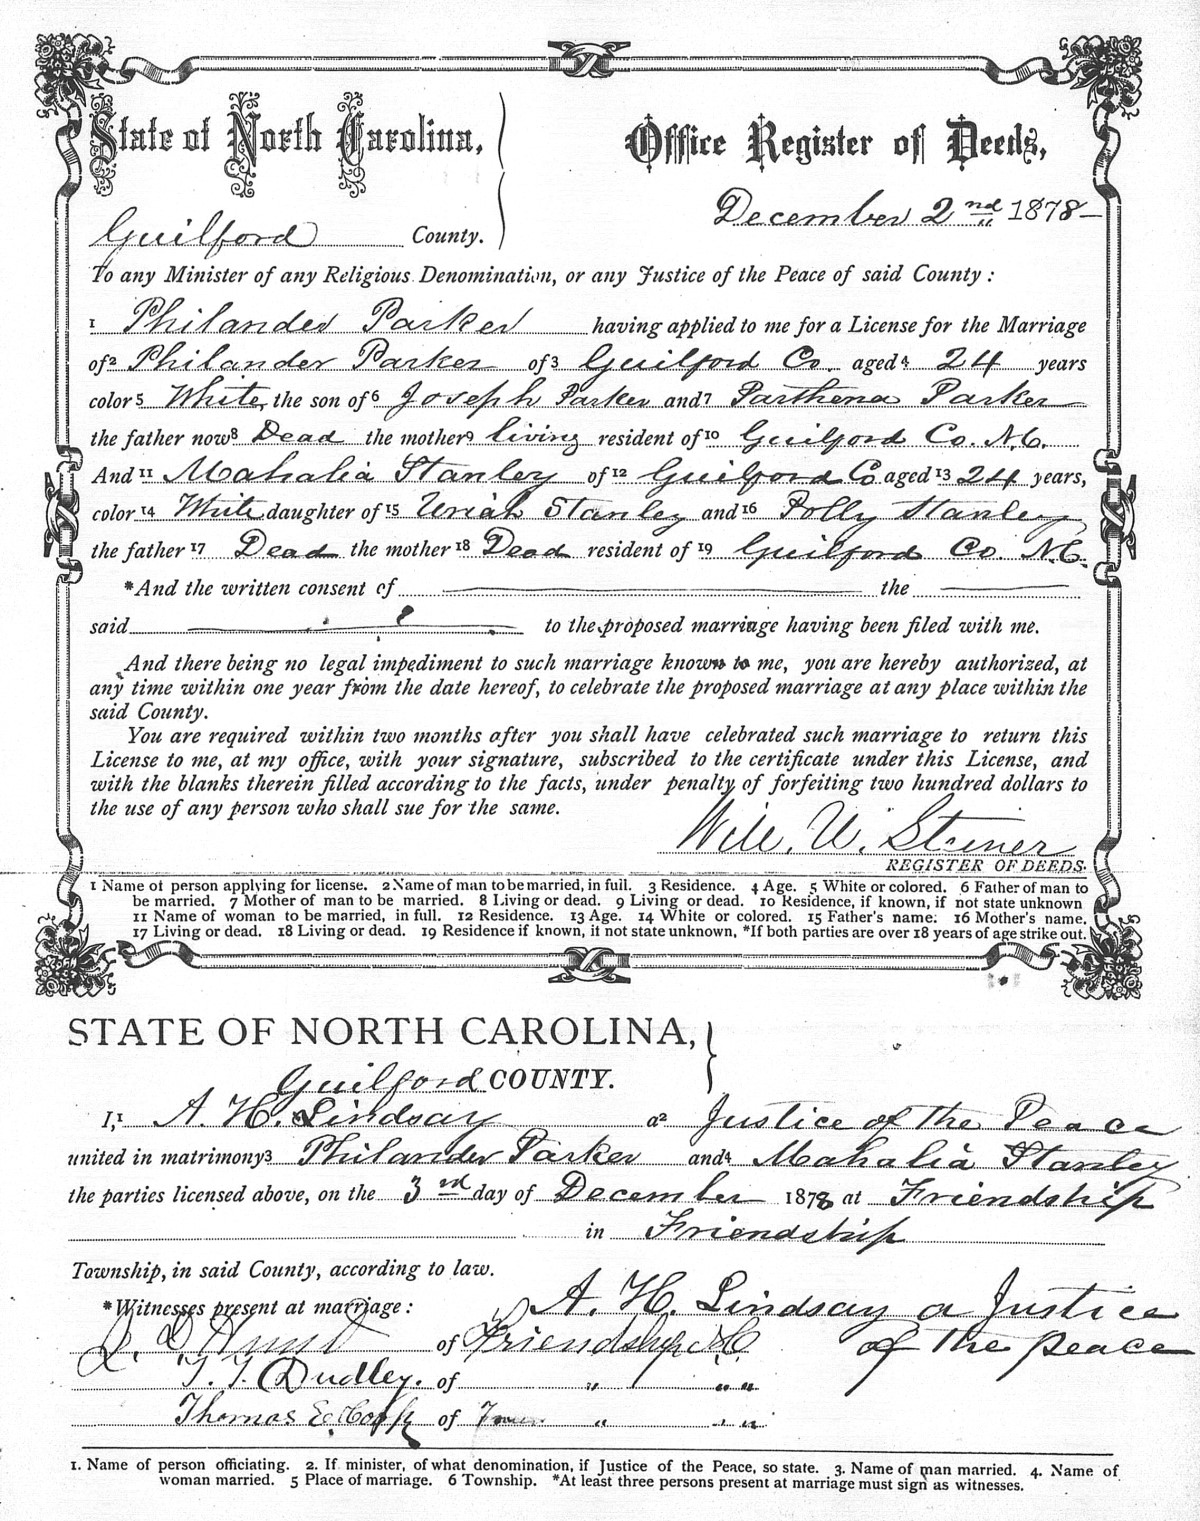 State of North Carolina,
Office Register of Deeds,
December 2nd 1878
Guilford County.
To any Minister of any Religious Denomination, or any Justice of the Peace of said County :
1 Philander Parker having applied to me for a License for the Marriage
of2 Philander Parker of3 Guilford Co. aged4 24 years
color5 White, the son of6 Joseph Parker and7 Parthena Parker
the father now8 Dead the mother9 living resident of10 Guilford Co. N.C.
And 11 Mahalia Stanley of12 Guilford Co aged13 24 years,
color14 White daughter of15 Uriah Stanley and16 Polly Stanley
the father 17 Dead the mother 18 Dead resident of 19 Guilford Co. N.C.
*And the written consent of the
said to the proposed marriage having been filed with me.
And there being no legal impediment to such marriage known to me, you are hereby authorized, at
any time within one year from the date hereof, to celebrate the proposed marriage at any place within the
said County.
You are required within two months after you shall have celebrated such marriage to return this
License to me, at my office, with your signature, subscribed to the certificate under this License, and
with the blanks therein filled according to the facts, under penalty of forfeiting two hundred dollars to
the use of any person who shall sue for the same.
Will. U. Steiner
REGISTER OF DEEDS.
1 Name of person applying for license. 2 Name of man to be married, in full. 3 Residence. 4 Age. 5 White or colored. 6 Father of man to
be married. 7 Mother of man to be married. 8 Living or dead. 9 Living or dead. 10 Residence, if known, if not state unknown
11 Name of woman to be married, in full. 12 Residence. 13 Age. 14 White or colored. 15 Father's name. 16 Mother's name.
17 Living or dead. 18 Living or dead. 19 Residence if known, it not state unknown, *If both parties are over 18 years of age strike out.
STATE OF NORTH CAROLINA,
Guilford COUNTY.
I,1 A. H. Lindsay a2 Justice of the Peace
united in matrimony3 Philander Parker and4 Mahalia Stanley
the parties licensed above, on the 3rd day of December 1878 at Friendship
in Friendship
Township, in said County, according to law.
*Witnesses present at marriage: A. H. Lindsay a Justice
of Friendship N.C. of the peace
T. T. Dudley. of " " "
Thomas E. Cook of " " "
1. Name of person officiating. 2. If minister, of what denomination, if Justice of the Peace, so state. 3. Name of man married. 4. Name of
woman married. 5 Place of marriage. 6 Township. *At least three persons present at marriage must sign as witnesses.